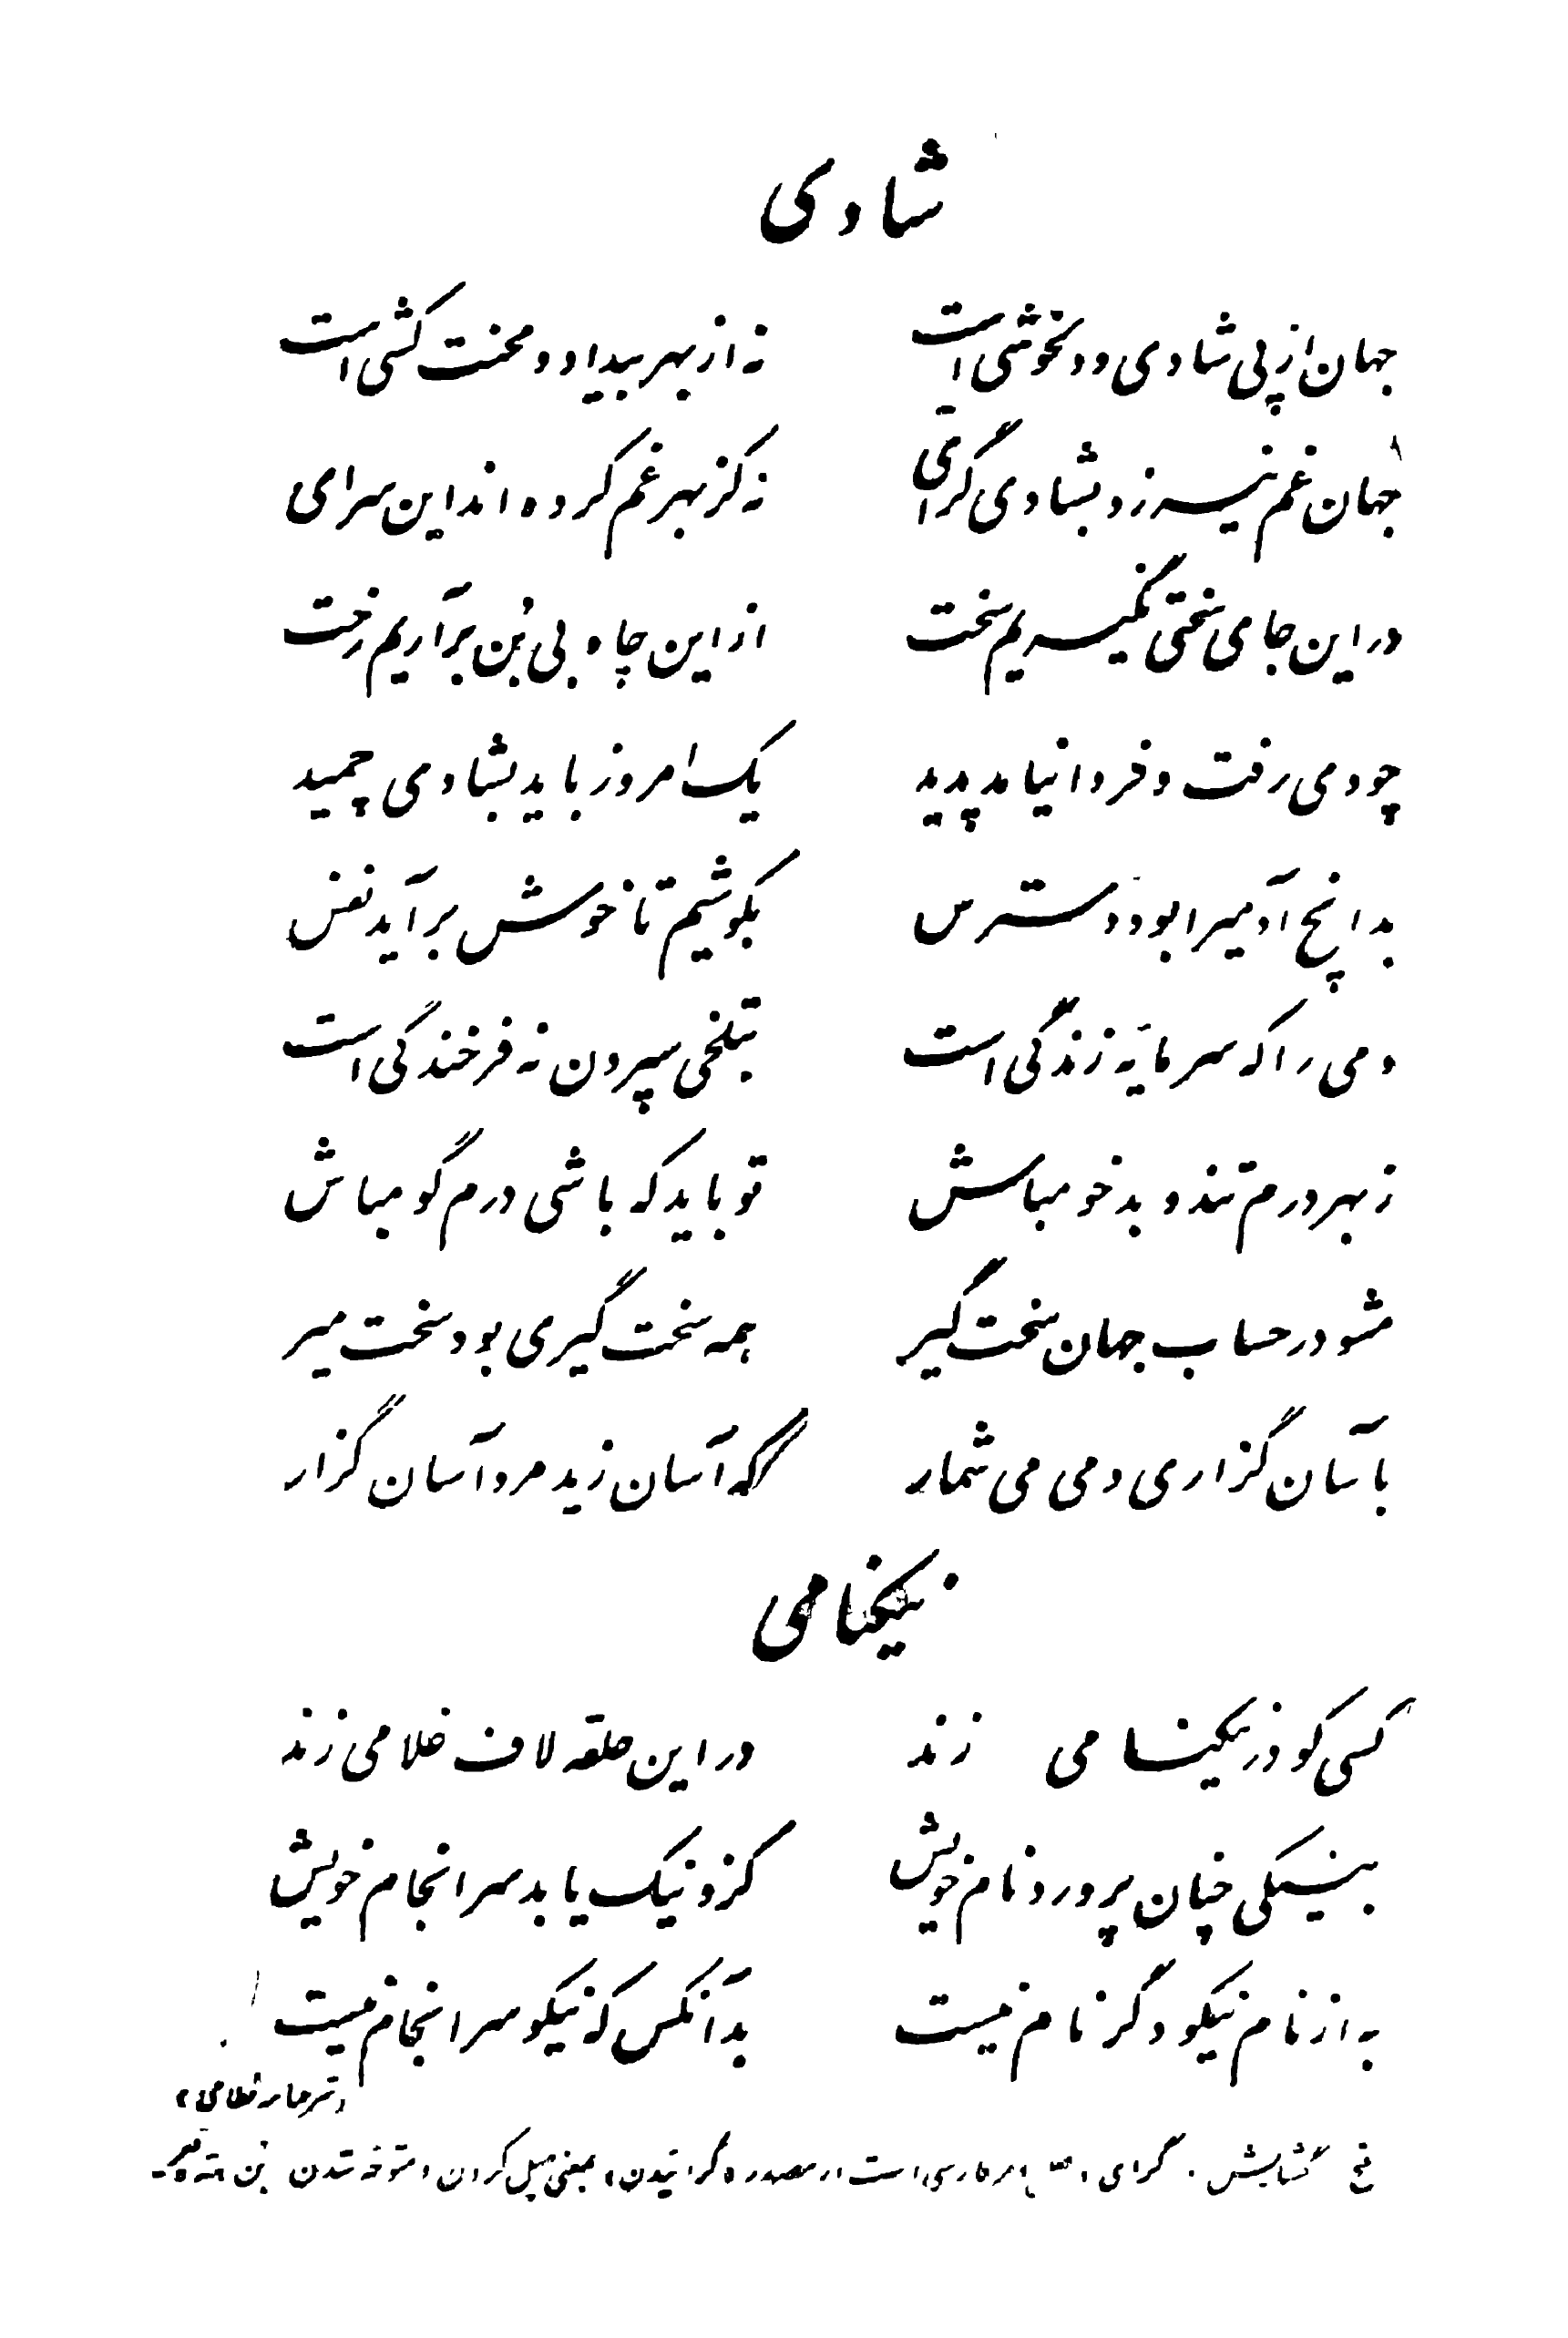 شادی
جهان از پی شادی و دلخوشی است نه از بهر بیداد و محنت کشی است
جهان غم نیرزد بشادی گرای نه کز بهر غم کرده اند این سرای
در این جای سختی نگیریم سخت از این چاه بی بُن برآریم رخت
چو دی رفت و فردا نیامد پدید یک امروز باید بشادی چمید
بدانچ آدمیرا بود دسترس بکوشیم تا خوش برآید نفس
دمی را که سرمایه زندگی است بتلخی سپردن نه فرخندگی است
ز بهر درم تند و بدخو مباش تو باید که باشی درم گو مباش
مشو در حساب جهان سخت گیر همه سخت گیری بود سخت میر
بآسان گزاری دمی می شمار که آسان زید مرد آسان گزار
نیکنامی
کسی کو در نیکنامی زند در این حلقه لاف غلامی زند
بنیکی چنان پرورد نام خویش کزو نیک یابد سرانجام خویش
به از نام نیکو دگر نام نیست بد آنکس که نیکو سرانجام نیست
نظامی
گشایش . گرای، است از مصدر گرائیدن بمعنی میل کردن و متوجه شدن بُن